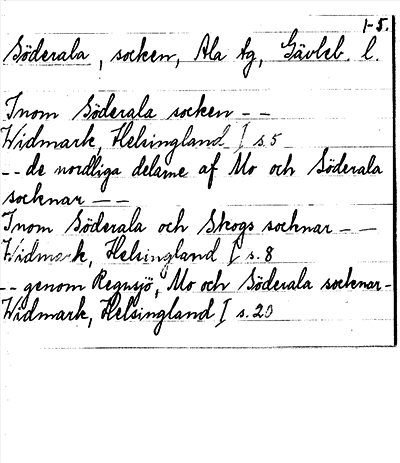 1-5.
Söderala, socken, Ala tg, Gävleb. l.
Inom Söderala socken - -
Widmark, Helsingland I s. 5
- - de nordliga delarne af Mo och Söderala
socknar - -
Inom Söderala och Skogs socknar - -
Widmark, Helsingland I s. 8
- - genom Regnsjö, Mo och Söderala socknar -
Widmark, Helsingland I s. 20